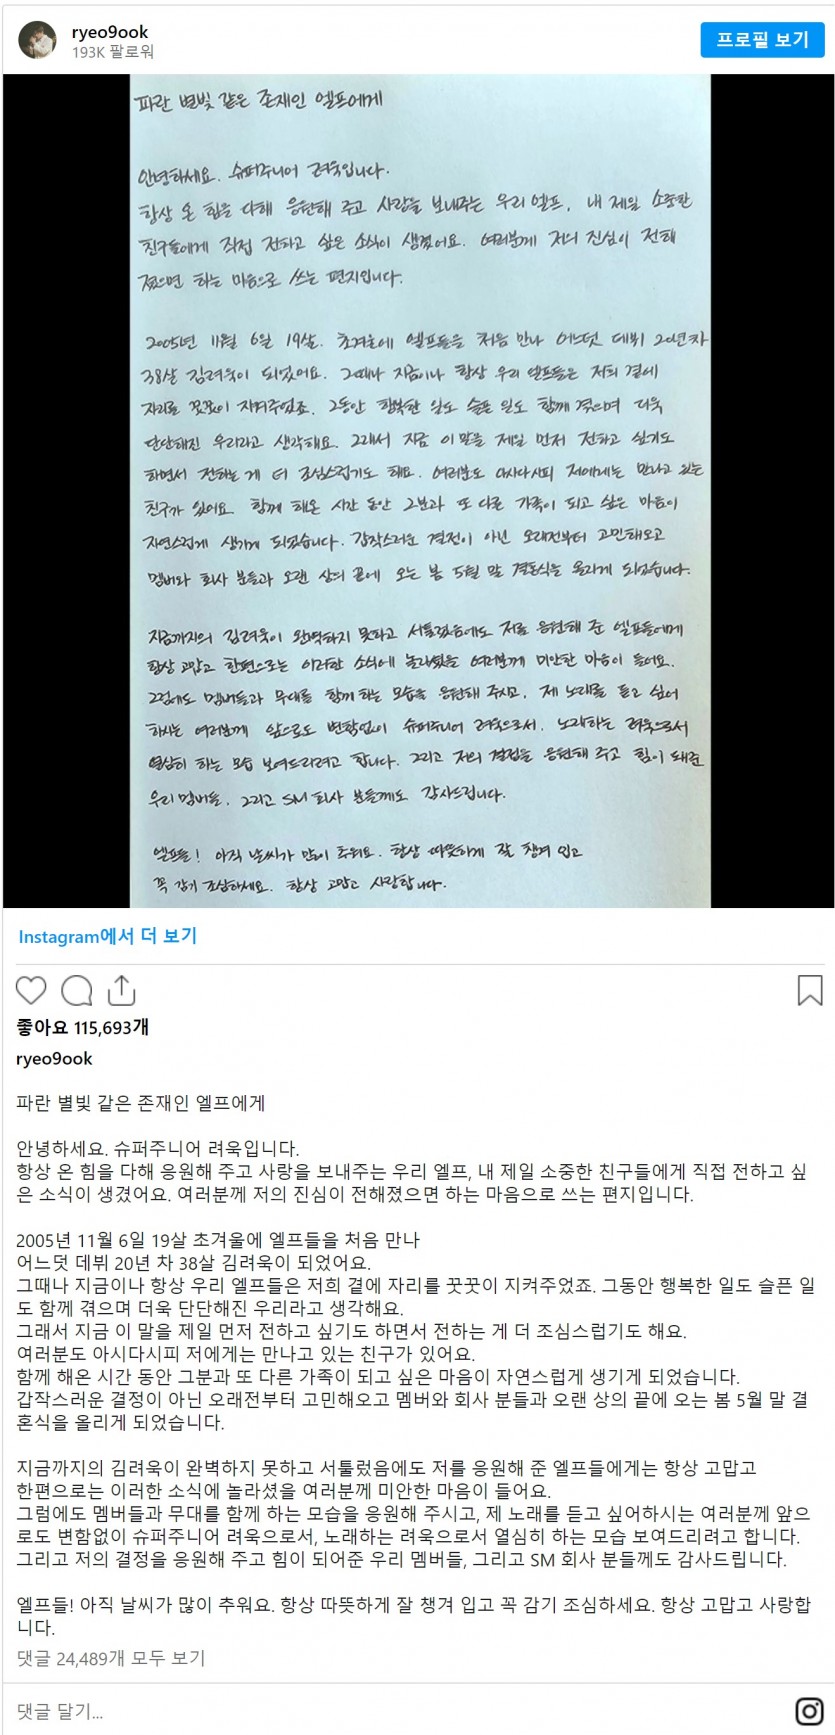 ryeo9ook
193K 팔로워
프로필 보기
파란 별빛 같은 존재인 엘프에게
안녕하세요. 슈퍼주니어 려욱입니다.
항상 온 힘을 다해 응원해 주고 사랑을 보내주는 우리 엘프, 내 제일 소중한
친구들에게 직접 전하고 싶은 소식이 생겼어요. 여러분께 저의 진심이 전해
졌으면 하는 마음으로 쓰는 편지입니다.
2005년 11월 6일 19살. 초겨울에 엘프들을 처음 만나 어느덧 데뷔 20년차
38살 김려욱이 되었어요. 그때나 지금이나 항상 우리 엘프들은 저희 곁에
자리를 꿋꿋이 지켜주었죠. 그동안 행복한 일도 슬픈 일도 함께 겪으며 더욱
단단해진 우리라고 생각해요. 그래서 지금 이 말을 제일 먼저 전하고 싶기도
하면서 전하는 게 더 조심스럽기도 해요. 여러분도 아시다시피 저에게는 만나고 있는
친구가 있어요. 함께 해온 시간 동안 그분과 또 다른 가족이 되고 싶은 마음이
자연스럽게 생기게 되었습니다. 갑작스러운 결정이 아닌 오래전부터 고민해오고
멤버와 회사 분들과 오랜 상의 끝에 오는 봄 5월 말 결혼식을 올리게 되었습니다.
지금까지의 김려욱이 완벽하지 못하고 서툴렀음에도 저를 응원해 준 엘프들에게
항상 고맙고 한편으로는 이러한 소식에 놀라셨을 여러분께 미안한 마음이 들어요.
그럼에도 멤버들과 무대를 함께 하는 모습을 응원해 주시고, 제 노래를 듣고 싶어
하시는 여러분께 앞으로도 변함없이 슈퍼주니어 려욱으로서, 노래하는 려욱으로서
열심히 하는 모습 보여드리려고 합니다. 그리고 저의 결정을 응원해 주고 힘이 돼준
우리 멤버들, 그리고 SM 회사 분들께도 감사드립니다.
엘프들! 아직 날씨가 많이 추워요. 항상 따뜻하게 잘 챙겨 입고
꼭 감기 조심하세요. 항상 고맙고 사랑합니다.
Instagram에서 더 보기
좋아요 115,693개
ryeo9ook
파란 별빛 같은 존재인 엘프에게
안녕하세요. 슈퍼주니어 려욱입니다.
항상 온 힘을 다해 응원해 주고 사랑을 보내주는 우리 엘프, 내 제일 소중한 친구들에게 직접 전하고 싶
은 소식이 생겼어요. 여러분께 저의 진심이 전해졌으면 하는 마음으로 쓰는 편지입니다.
2005년 11월 6일 19살 초겨울에 엘프들을 처음 만나
어느덧 데뷔 20년 차 38살 김려욱이 되었어요.
그때나 지금이나 항상 우리 엘프들은 저희 곁에 자리를 꿋꿋이 지켜주었죠. 그동안 행복한 일도 슬픈 일
도 함께 겪으며 더욱 단단해진 우리라고 생각해요.
그래서 지금 이 말을 제일 먼저 전하고 싶기도 하면서 전하는 게 더 조심스럽기도 해요.
여러분도 아시다시피 저에게는 만나고 있는 친구가 있어요.
함께 해온 시간 동안 그분과 또 다른 가족이 되고 싶은 마음이 자연스럽게 생기게 되었습니다.
갑작스러운 결정이 아닌 오래전부터 고민해오고 멤버와 회사 분들과 오랜 상의 끝에 오는 봄 5월 말 결
혼식을 올리게 되었습니다.
지금까지의 김려욱이 완벽하지 못하고 서툴렀음에도 저를 응원해 준 엘프들에게는 항상 고맙고
한편으로는 이러한 소식에 놀라셨을 여러분께 미안한 마음이 들어요.
그럼에도 멤버들과 무대를 함께 하는 모습을 응원해 주시고, 제 노래를 듣고 싶어하시는 여러분께 앞으
로도 변함없이 슈퍼주니어 려욱으로서, 노래하는 려욱으로서 열심히 하는 모습 보여드리려고 합니다.
그리고 저의 결정을 응원해 주고 힘이 되어준 우리 멤버들, 그리고 SM 회사 분들께도 감사드립니다.
엘프들! 아직 날씨가 많이 추워요. 항상 따뜻하게 잘 챙겨 입고 꼭 감기 조심하세요. 항상 고맙고 사랑합
니다.
댓글 24,489개 모두 보기
댓글 달기...